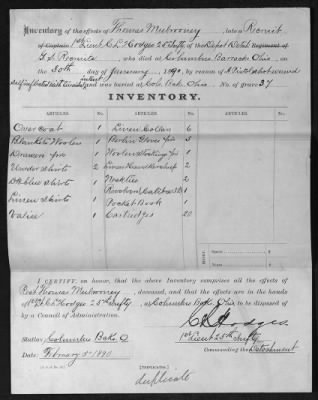 Inventory of the effects of Thomas Mulrooney, late a Recruit
of Captain 1st Lieut C.L. Hodges 25 Infty of the Depot Detch Regiment of
G.S. Recruits, who died at Columbus Barracks Ohio, on
the 30th day of January, 1890, by reason of A Pistol shot wound
self inflicted with suicidal intent and was buried at Cols. Bks. Ohio No of grave 37
INVENTORY.
ARTICLES. No. ARTICLES. No. ARTICLES. No.
Over coat 1 Linen Collars 6
Blankets Woolen 1 Berlin Gloves prs 5
Drawers prs 1 Woolen Stockings prs 1
Under shirts 2 Linen Handkerchief 2
DB blue shirts 1 Neckties 2
Linen shirts 1 Revolver Calibre 1
Valise 1 Pocket Book 1
Cartridges 20
Specie
Notes
I CERTIFY, on honor, that the above Inventory comprises all the effects
of Rect Thomas Mulrooney, deceased, and that the effects are in the hands
of 1st Lt C.L. Hodges 25th Infty, at Columbus Bks. Ohio to be disposed of
by a Council of Administration.
C L Hodges
1st Lieut 25th Infty
Commanding the Detachment
Station: Columbus Bks. O
Date: February 5" 1890
[DUPLICATE.]
duplicate